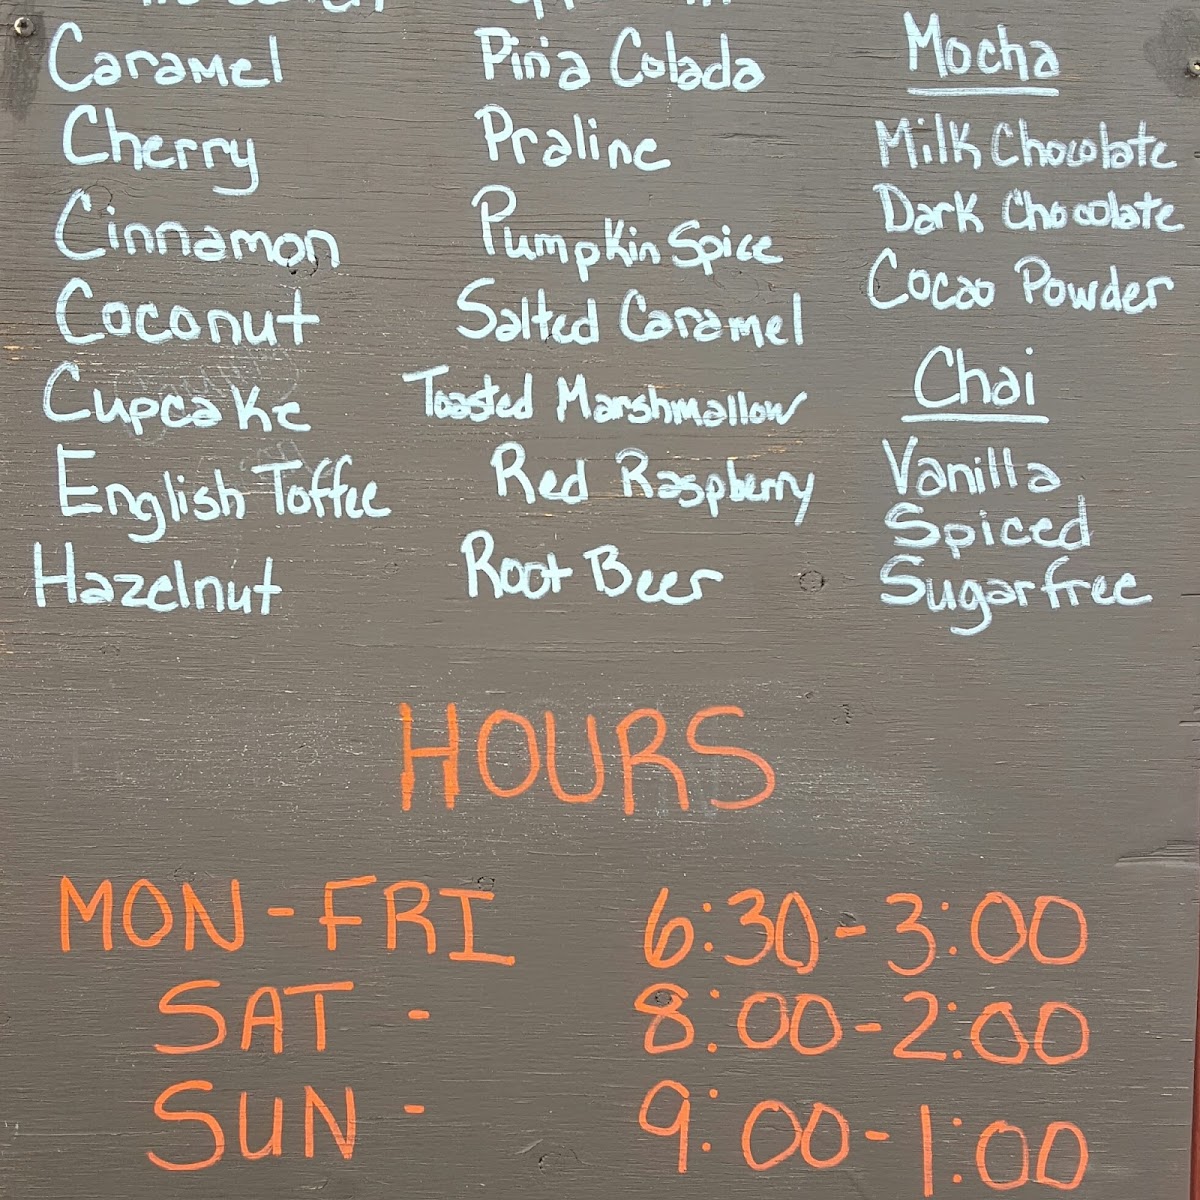 Caramel
Cherry
Cinnamon
Coconut
Cupcake
English Toffee
Hazelnut
Piña Colada
Praline
Pumpkin Spice
Salted Caramel
Toasted Marshmallow
Red Raspberry
Root Beer
Mocha
Milk Chocolate
Dark Chocolate
Cocao Powder
Chai
Vanilla
Spiced
Sugarfree
HOURS
MON-FRI 6:30-3:00
SAT - 8:00-2:00
SUN - 9:00-1:00